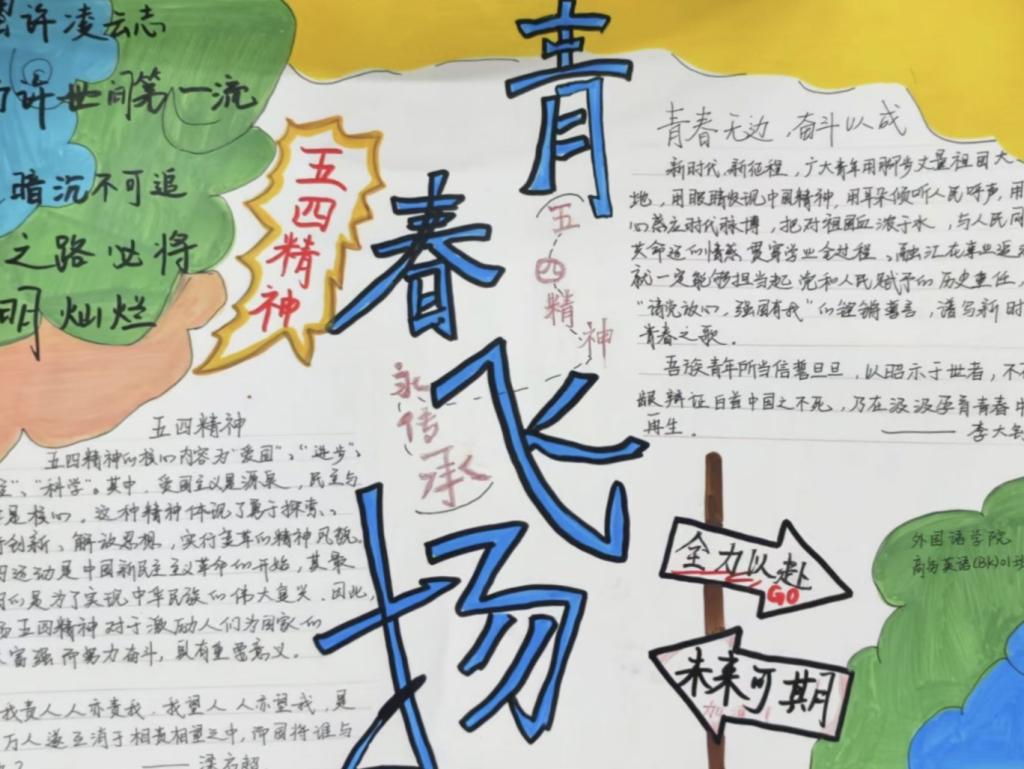 许凌云志
许世间第一流
暗沉不可追
之路必将
明灿烂
五四精神
青春飞扬
五四精神
永传承
青春无边 奋斗以成
新时代,新征程,广大青年用脚步丈量祖国大
地,用眼睛发现中国精神,用耳朵倾听人民呼声,用
心感应时代脉搏,把对祖国血浓于水,与人民同
共命运的情感贯穿学业全过程、融汇在事业追
就一定能够担当起党和人民赋予的历史重任,
“请党放心,强国有我”的铿锵誓言,谱写新时
青春之歌.
吾族青年所当信誓旦旦,以昭示于世者,不
龈辩证白首中国之不死,乃在汲汲孕育青春中
再生.
—— 李大
五四精神
五四精神的核心内容为“爱国”、“进步”、
“科学”。其中,爱国主义是源泉,民主与
是核心,这种精神体现了勇于探索、
创新、解放思想,实行变革的精神风貌.
运动是中国新民主主义革命的开始,其最
的是为了实现中华民族的伟大复兴.因此,
五四精神对于激励人们为国家的
富强而努力奋斗,具有重要意义.
我责人人亦责我,我望人人亦望我,是
万人遂互消于相责相望之中,而国将谁与
—— 梁启超
全力以赴
GO
未来可期
加
外国语学院
商务英语(BK)01班